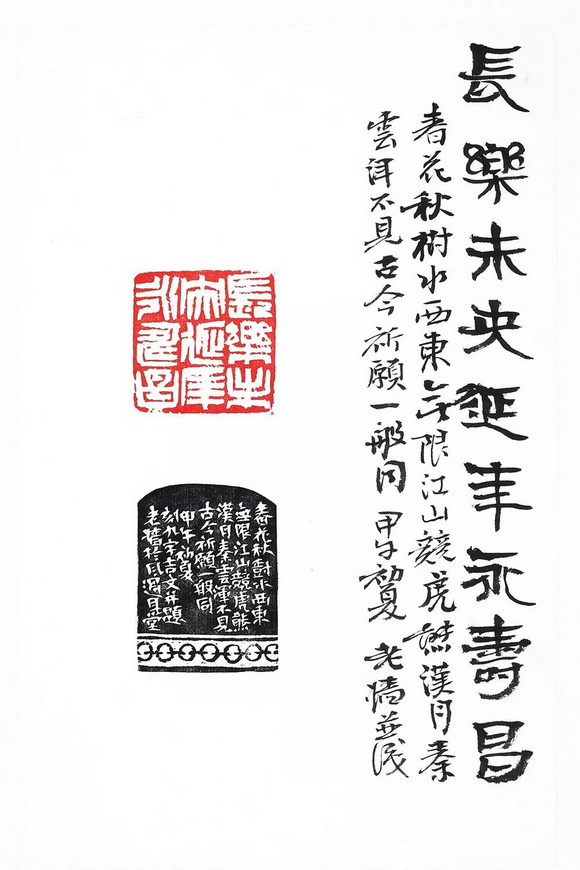 長樂未央延年永壽昌
春花秋樹水西東無限江山競虎熊漢月秦
雲渾不見古今祈願一般同 甲午初夏 老墻並
長樂未
央延年
永壽昌
春花秋樹水西東
無限江山競虎熊
漢月秦雲渾不見
古今祈願一般同
甲午初夏
刻九字吉文并題
老墻於月堂